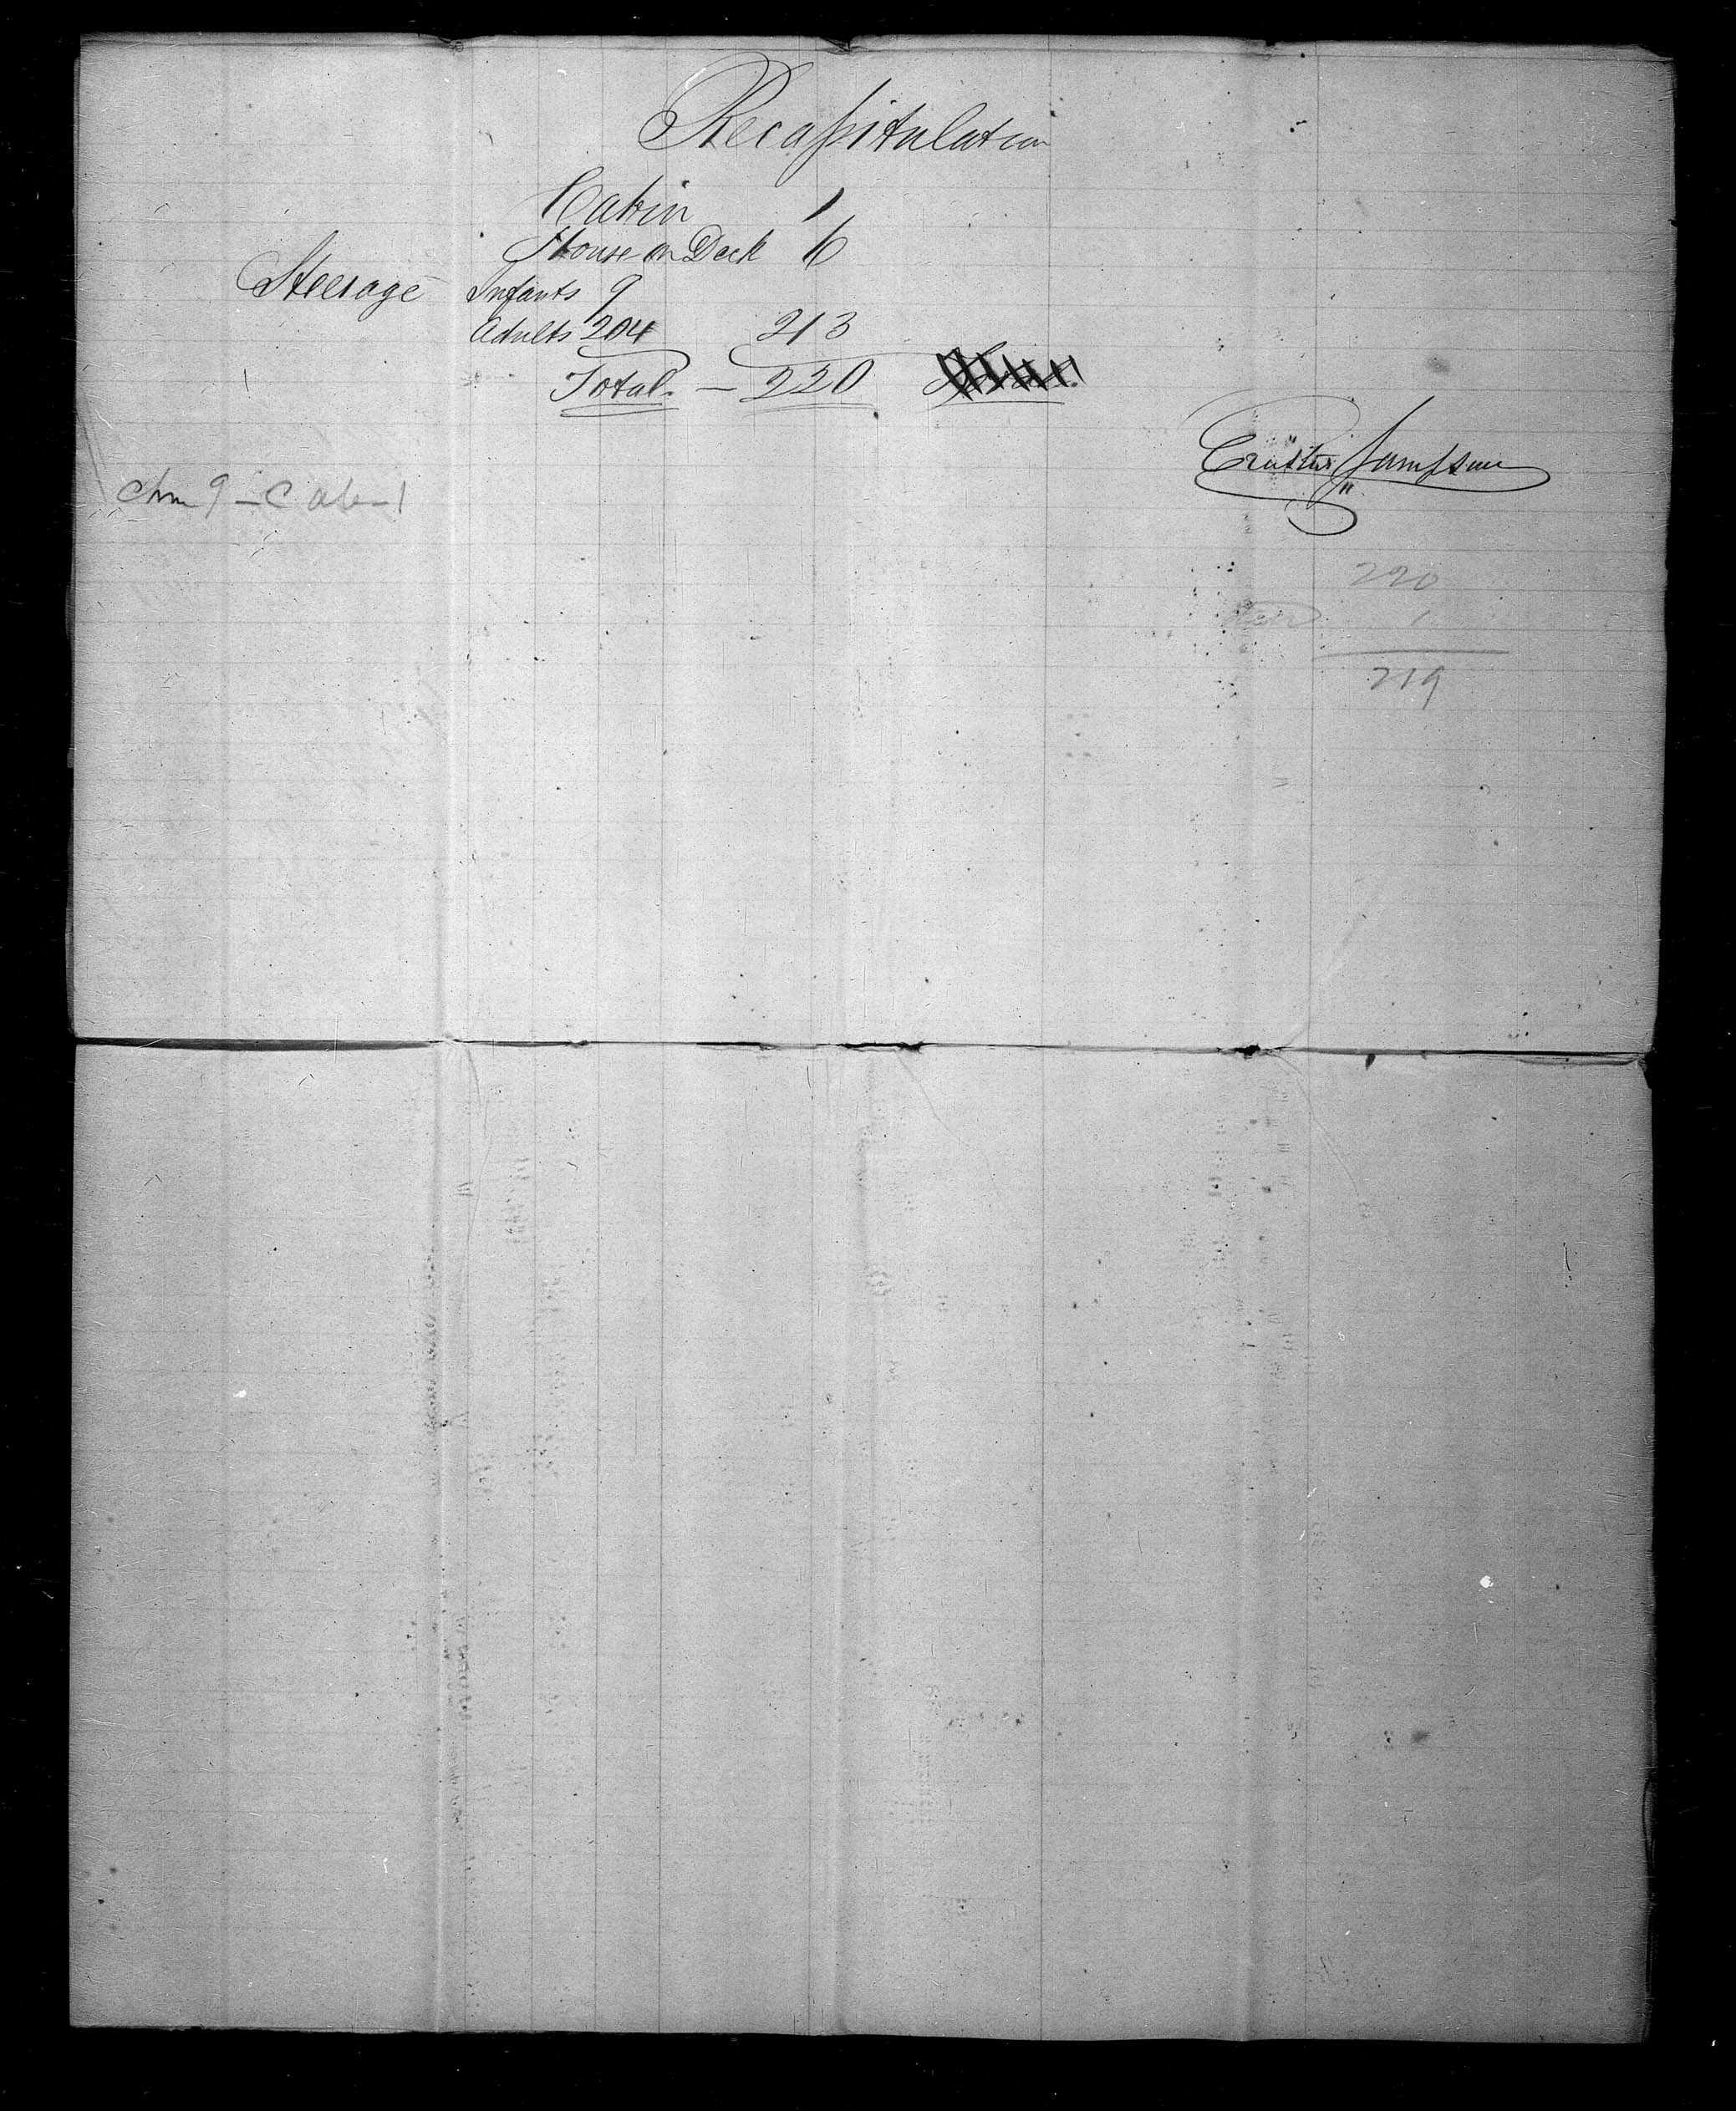 Recapitulation
Cabin 1
House on Deck 6
Steerage Infants 9
Adults 204 213
Total - 220
Erastus Sampson
Am 9 - C ab - 1
220
1
219